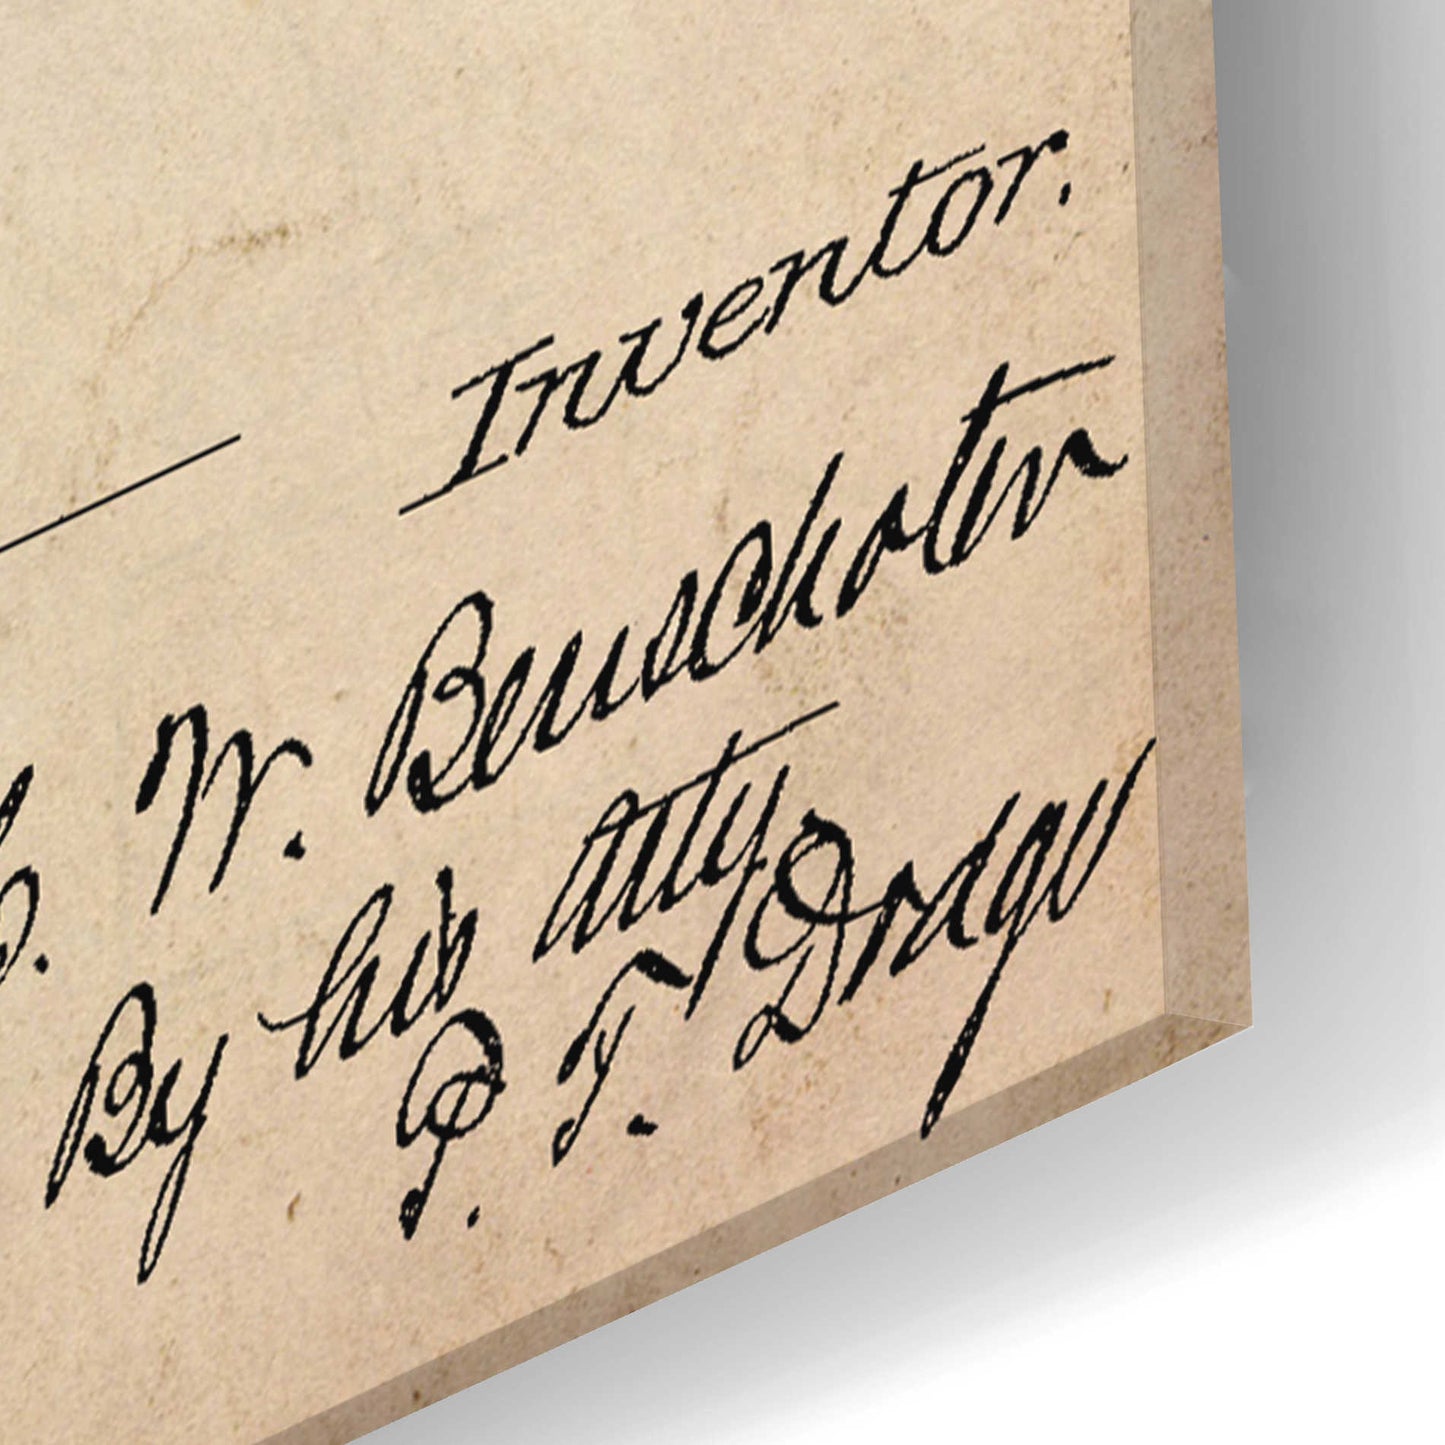 Inventor.
W. Beuscholein
By his atty
P. T. Dodge